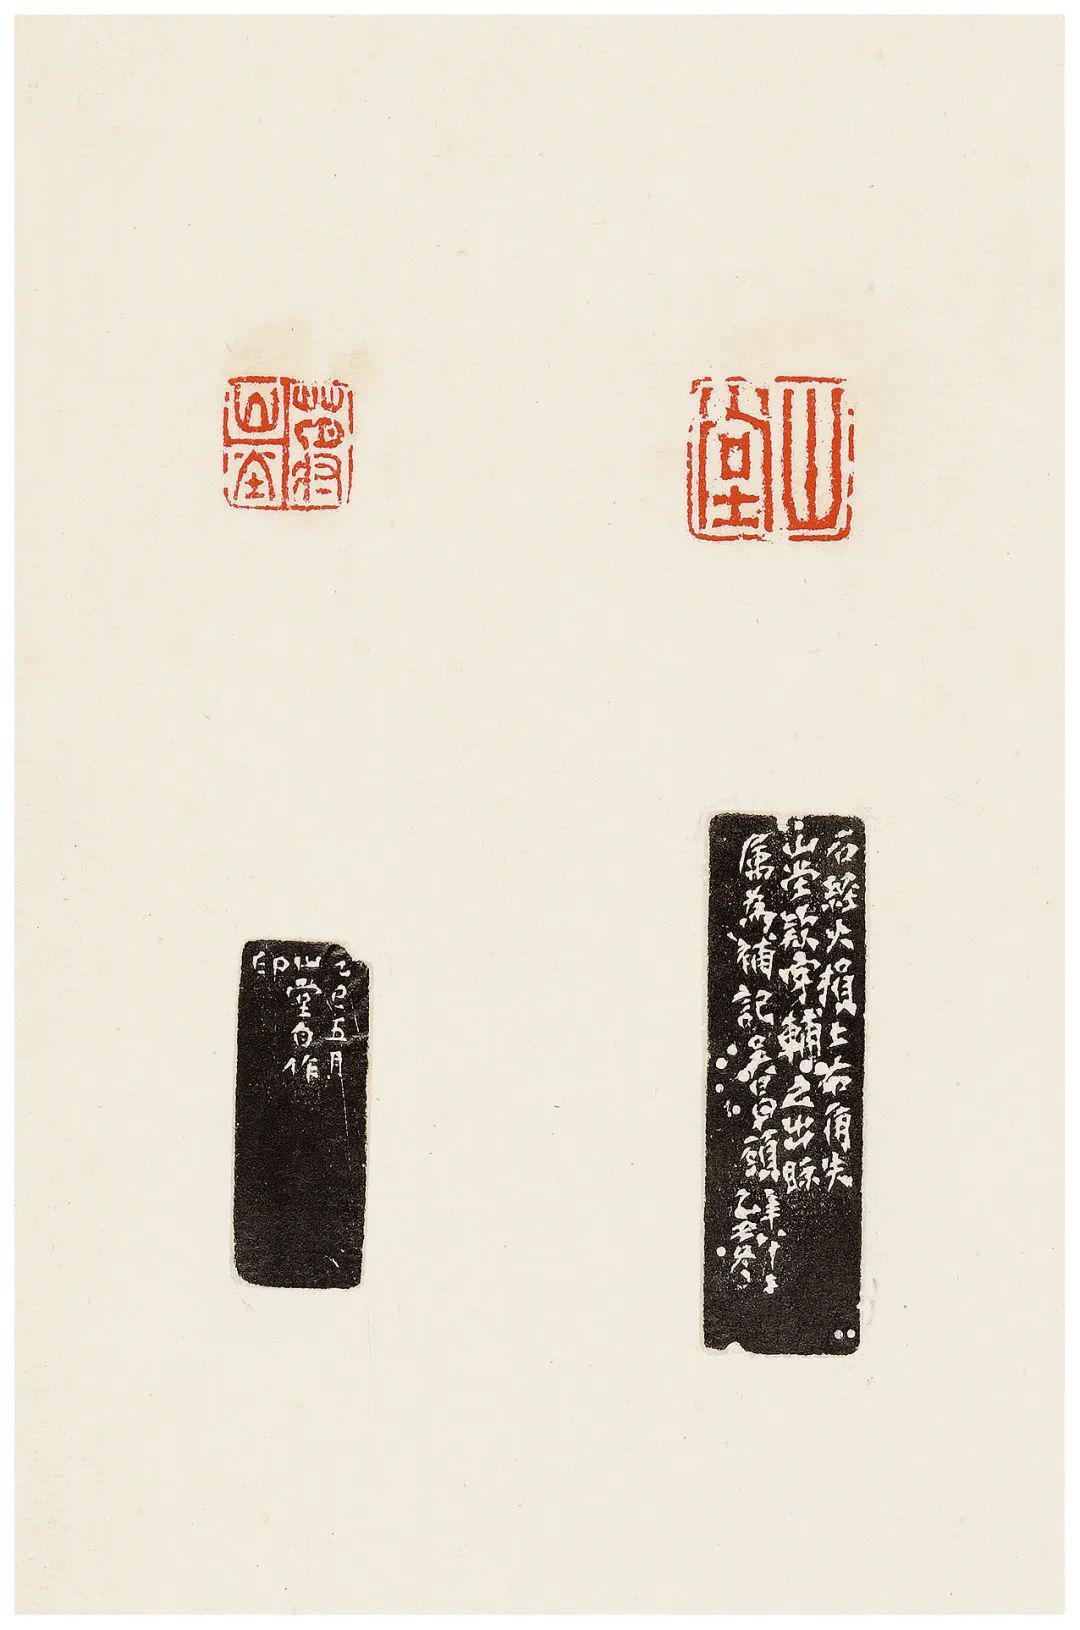 山堂
蔣山堂
石經火損上右角失
山堂款字輔之出眎
屬為補記吳昌碩年八十二
乙丑冬
己巳五月
山堂自作
印